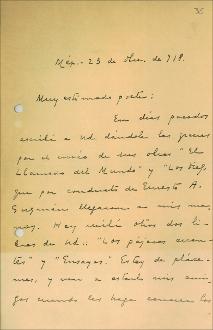 35
Méx.- 23 de Dbre. de 918.
Muy estimado poeta:
En días pasados
escribí a Ud dándole las gracias
por el envío de sus obras "El
Llamado del Mundo" y "Los
que por conducto de Ernesto A.
Guzmán llegaron a mis ma-
nos. Hoy recibí otros dos li-
bros de Ud.: "Los pájaros erran-
tes" y "Ensayos." Estoy de pláce-
mes, y van a estarlo mis ami-
gos cuando les haga conocer los